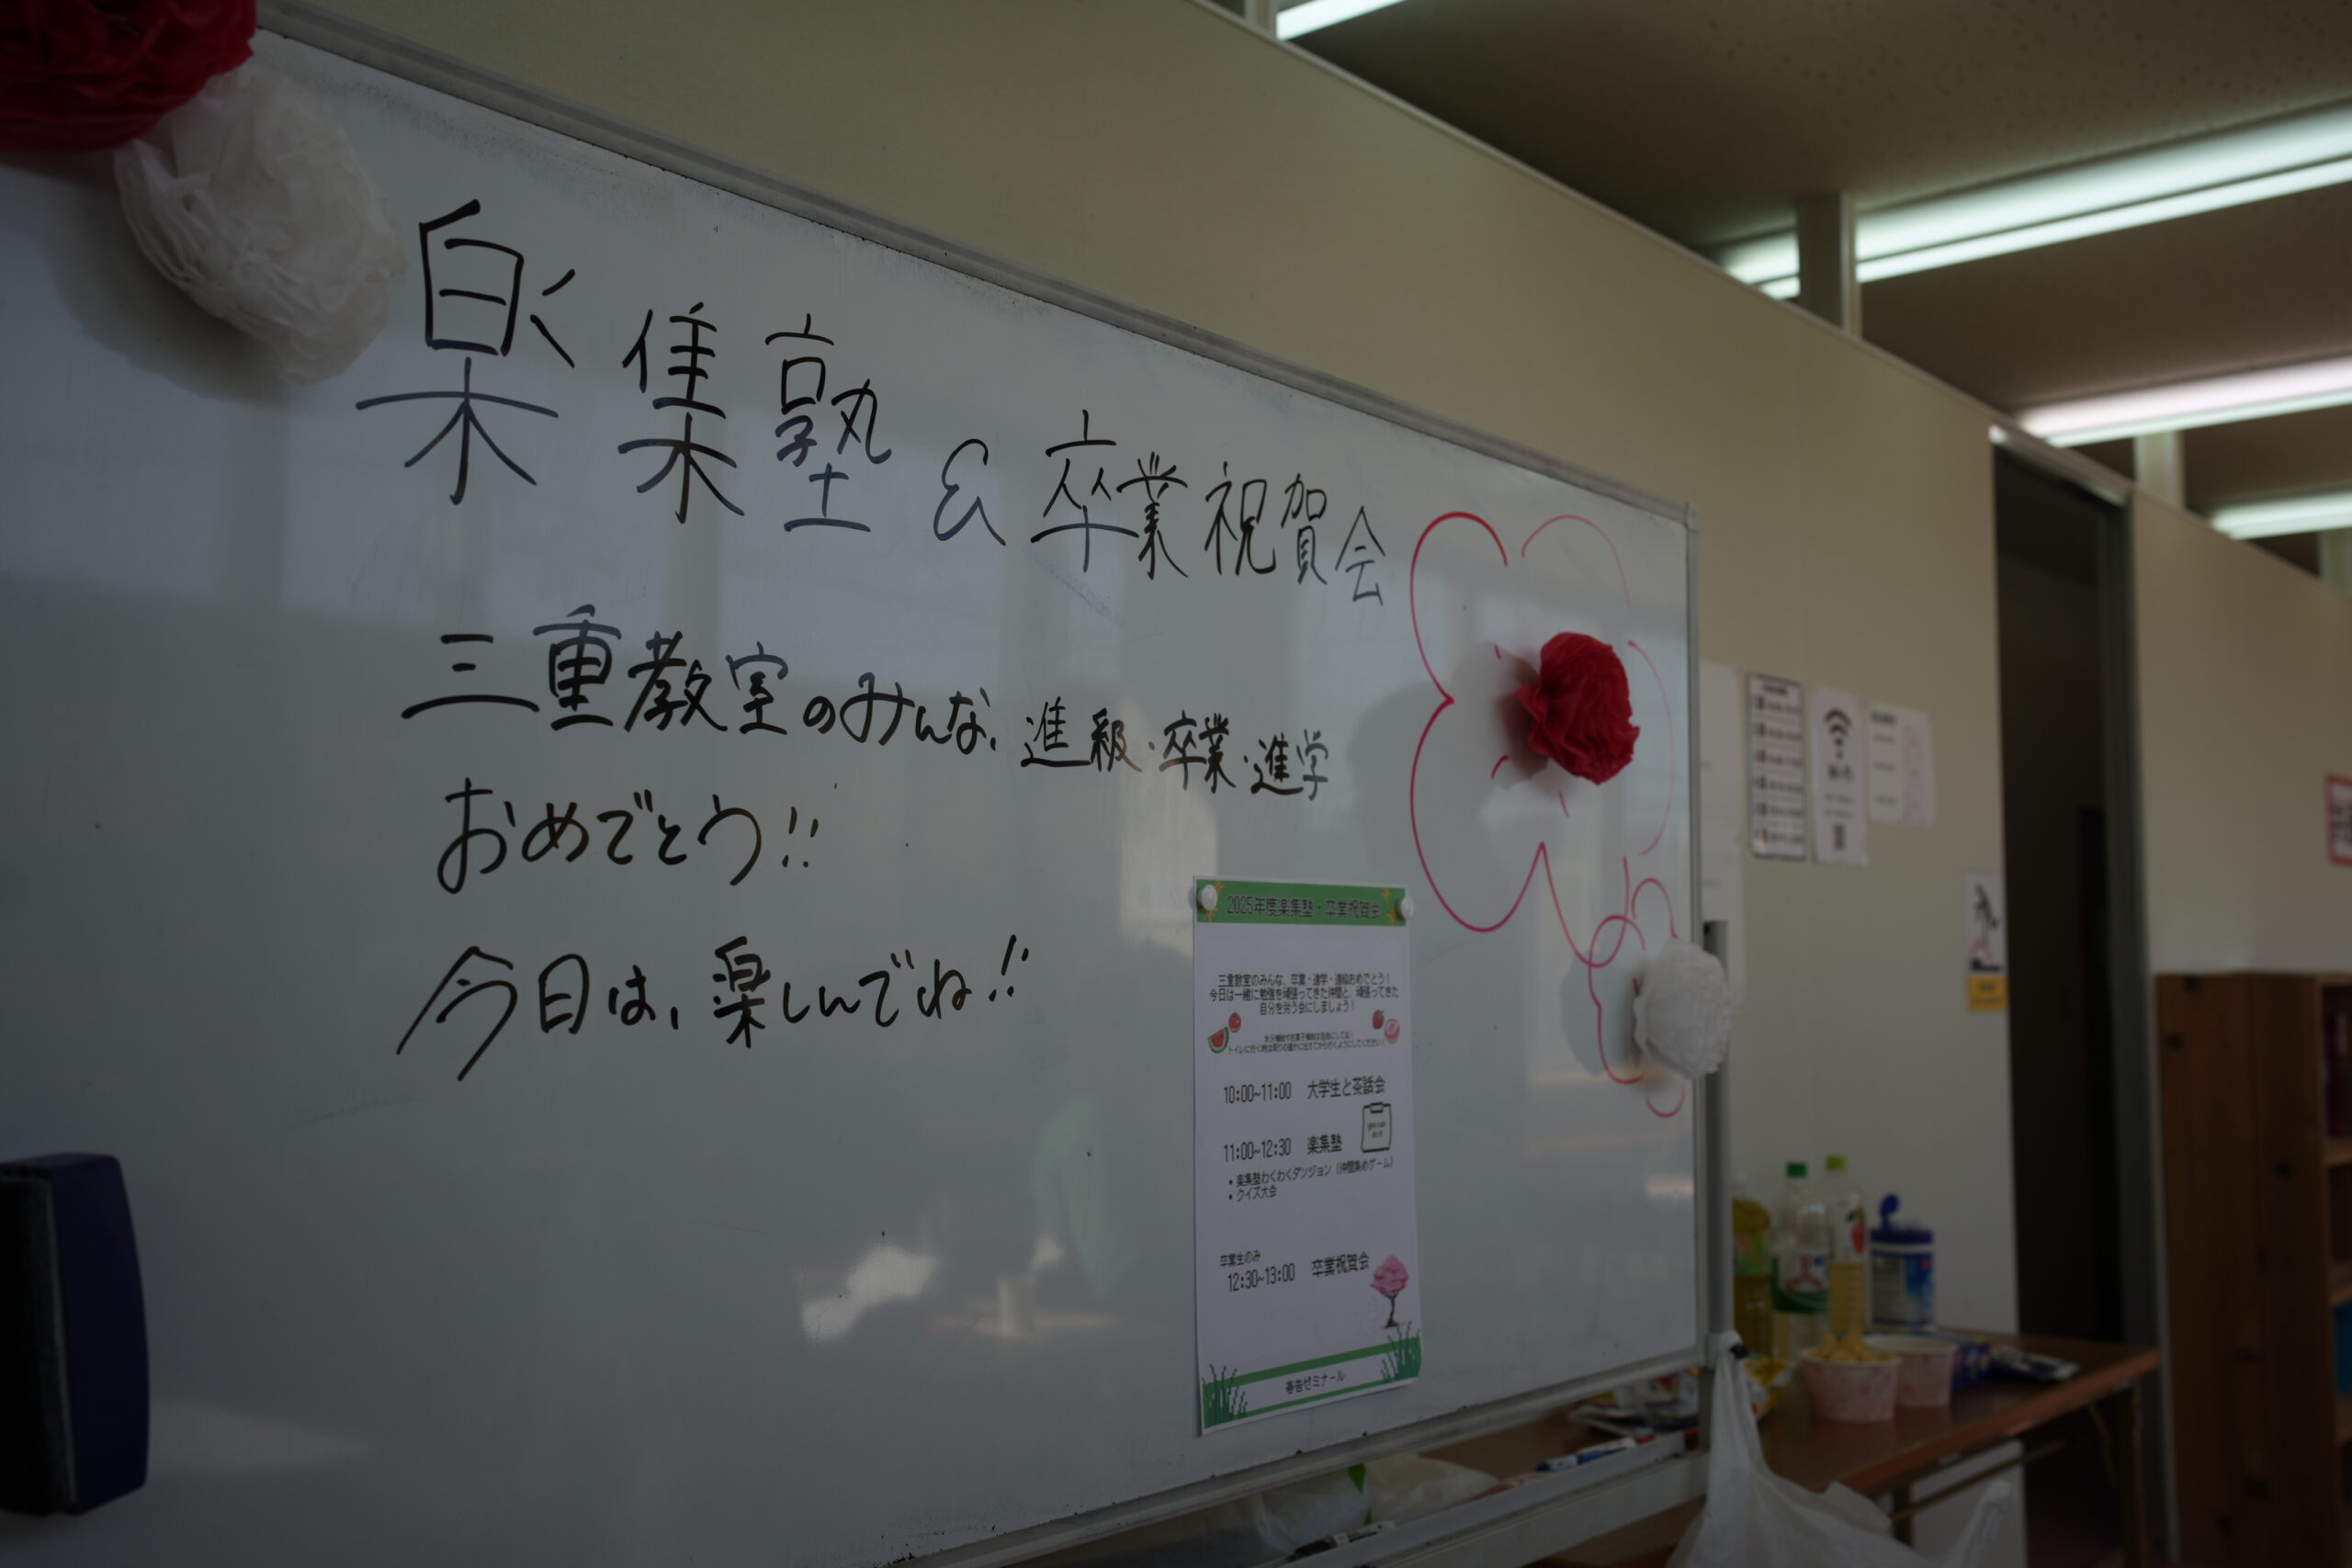 楽集塾 & 卒業祝賀会
三重教室のみんな、進級・卒業・進学
おめでとう!!
今日は、楽しんでね!!
2025年度楽集塾・卒業祝賀会
三重教室のみんな、卒業・進学・進級おめでとう!
今日は一緒に勉強を頑張ってきた仲間と、頑張ってきた
自分を労う会にしましょう!
10:00~11:00 大学生と茶話会
11:00~12:30 楽集塾
・楽集塾わくわくダンジョン(仲間集めゲーム)
・クイズ大会
卒業生のみ
12:30~13:00 卒業祝賀会